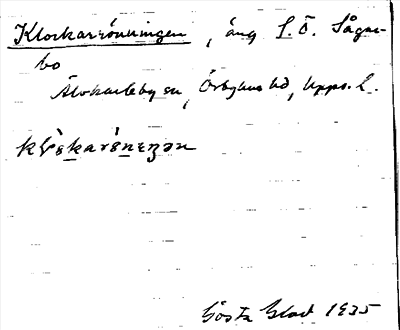 Klockarrönningen, äng S. Ö. Sågar-
bo
Älvkarleby sn, Örbyhus hd, Upps. l.
Gösta Glad 1935